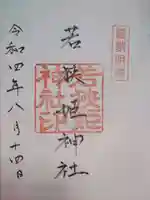 若狭姫神社
若狭姫神社印
令和四年八月十四日